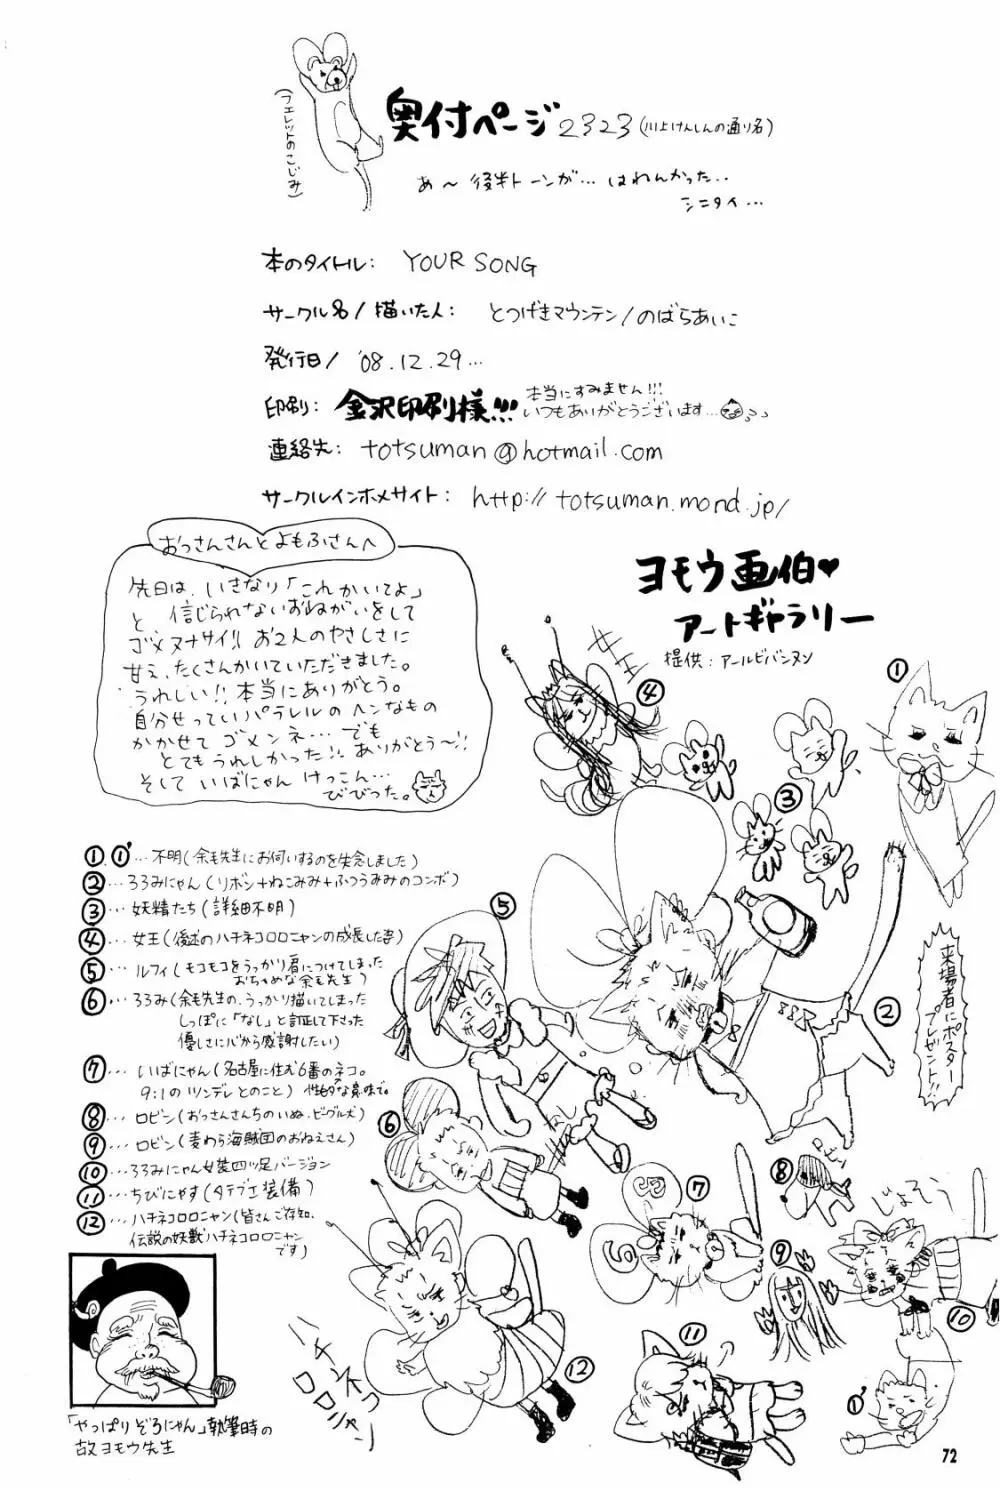 (フェレットのこじみ)
奥付ページ 2323(川上けんしんの通り名)
あ～後半トーンが… はれんかった..
シニタイ…
本のタイトル: YOUR SONG
サークル名/描いた人: とつげきマウンテン/のばらあいこ
発行日/ '08.12.29…
印刷: 金沢印刷様!!! 本当にすみません!!!
いつもありがとうございます…
連絡先: totsuman@hotmail.com
サークルインホメサイト: http://totsuman.mond.jp/
おっさんさんとよもふさんへ
先日は、いきなり「これかいてよ」
と 信じられないおねがいをして
ゴメヌナサイ!! お2人のやさしさに
甘え、たくさんかいていただきました。
うれしい!! 本当にありがとう。
自分せっていパラレルのヘンなもの
かかせて ゴメンネ… でも
とてもうれしかった!! ありがとう～!!
そして いばにゃん けっこん…
びびった。
ヨモウ画伯♥
アートギャラリー
提供: アールビバンヌン
①.①'…不明(余毛先生にお伺いするのを失念しました)
②…ろろみにゃん(リボン+ねこみみ+ふつうみみのコンボ)
③…妖精たち(詳細不明)
④…女王(後述のハチネコロロニャンの成長した姿)
⑤…ルフィ(モコモコをうっかり君につけてしまった
おちゃめな余毛先生)
⑥…ろろみ(余毛先生の、うっかり描いてしまった
しっぽに「なし」と訂正して下さった
優しさに心から感謝したい)
⑦…いばにゃん(名古屋に住む6番のネコ。
9:1のツンデレとのこと) 性的な意味で。
⑧…ロビン(おっさんさんちのいぬ・ビーグル犬)
⑨…ロビン(麦わら海賊団のおねえさん)
⑩…ろろみにゃん女装四ツ足バージョン
⑪…ちびにゃす(タテブエ装備)
⑫…ハチネコロロニャン(皆さんご存知、
伝説の妖獣ハチネコロロニャン
です)
「やっぱりぞろにゃん」執筆時の
故ヨモウ先生
女王
④
①
③
⑤
②
来場者にポスター
プレゼント!!
なし
⑥
⑦
⑧
じょそう
⑨
⑩
⑪
⑫
ハチネコ
ロロニャン
①'
72